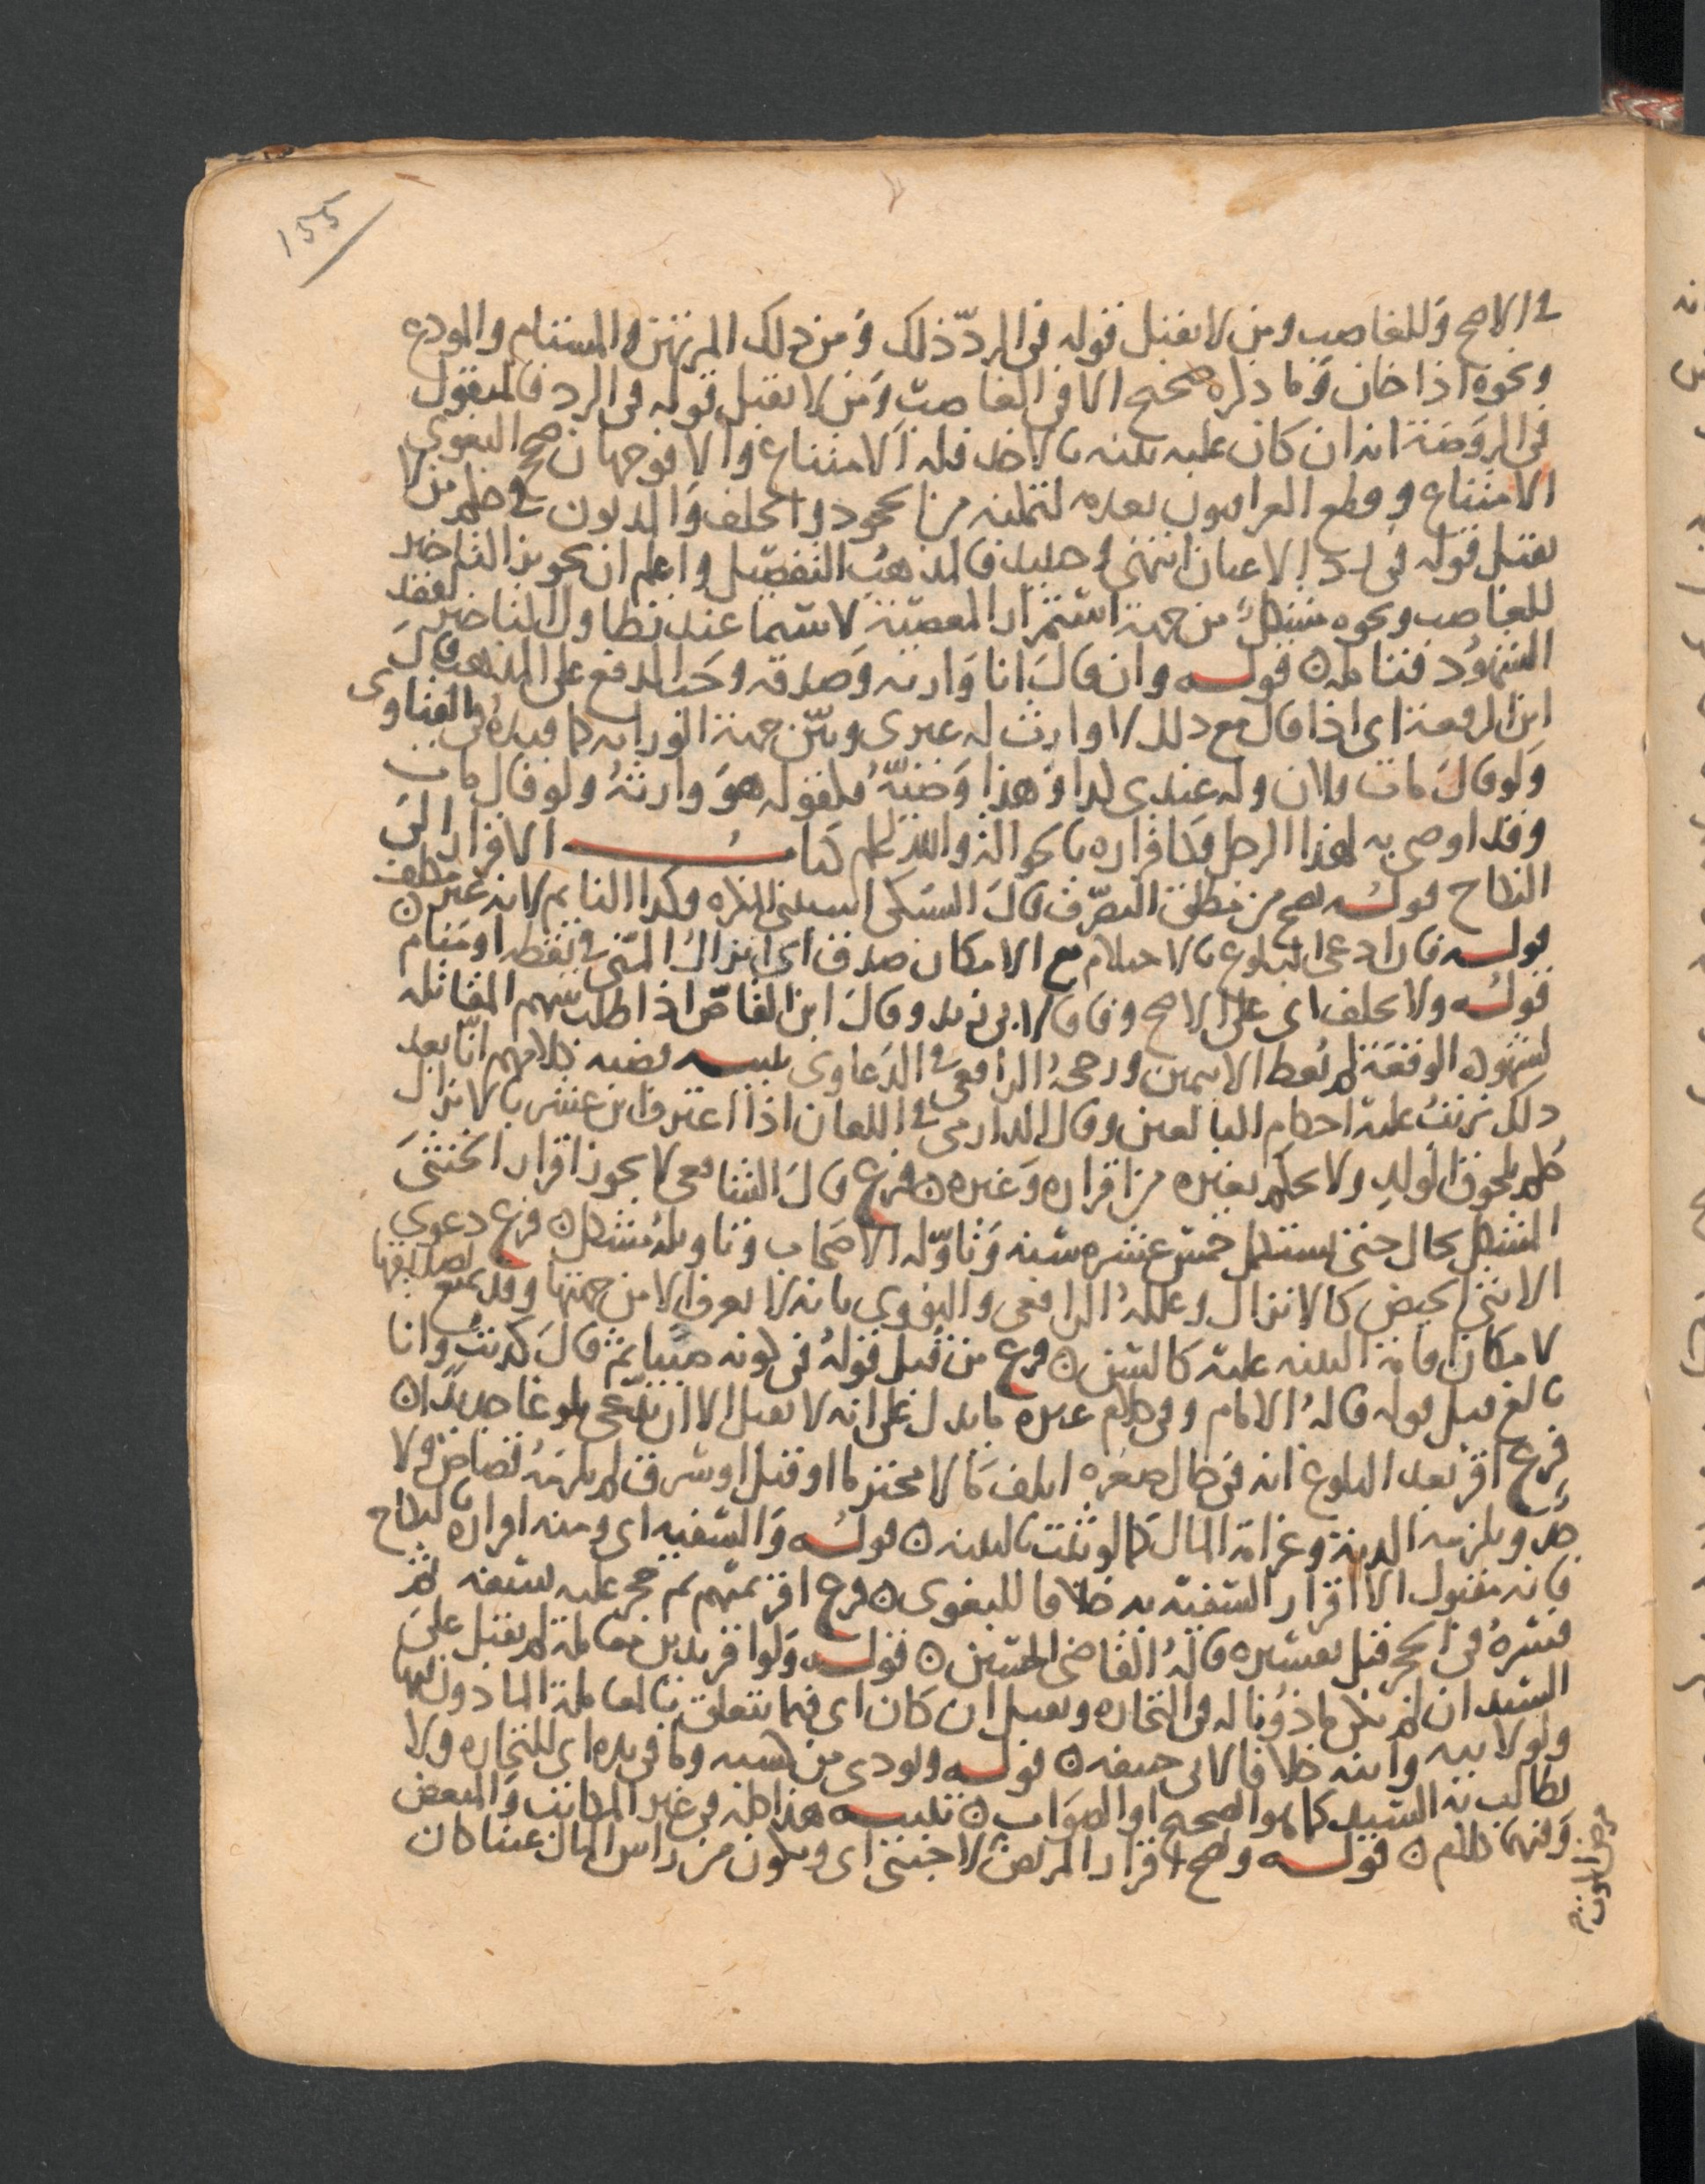 155
في الاصح وللغاصب ومن لا يقبل قوله في الرد ذلك ومن ذلك المرتهن والمستام والمودع
ونحوه اذا خان وما ذكره صحيح الا في الغاصب ومن لا يقبل قوله في الرد فالمنقول
في الروضة انه ان كان عليه بينه بالاخذ فله الامتناع والا فوجهان صحح البغوي
الامتناع وقطع العراقيون بعدمه لتمكنه من الجحود والحلف والمديون في حكم من لا
يقبل قوله في رد الاعيان انتهى وحينئذ فالمذهب التفصيل واعلم ان تجويز التاخير
للغاصب ونحوه مشكل من جهة استمرار المعصية لاسيما عند تطاول المتاخير لفقد
الشهود فتامله ن قوله وان قال انا وارثه وصدقه وجب الدفع على المذهب قال
ابن الرفعة اي اذا قال مع ذلك لا وارث له غيري وبين جهة الوراثه كما قيده في الفتاوى
ولو قال مات فلان وله عندي كذا وهذا وصيه فكقوله هو وارثه ولو قال مات
وقد اوصى به لهذا الرجل فكاقراره بالحوالة والله اعلم كتاب الاقرار الى
النكاح قوله يصح من مطلق التصرف قال السبكي المكره وكذا النائم لانه غير مكلف ن
قوله فان ادعى البلوغ بالاحتلام مع الامكان صدق اي انزال المني في يقظه او منام
قوله ولا يحلف اي على الاصح وفاقا لابي زيد وقال ابن القاص اذا طلب سهم المقاتله
لشهوده الوقعة لم يعط الا بيمين ورجحه الرافعي في الدعاوي تنبيه قضيه كلامهم انا بعد
ذلك نرتب عليه احكام البالغين وقال الدارمي في اللعان اذا اعترف ابن عشر بالانزال
حكم بلحوق الولد ولا يحكم بغيره من اقراره وغيره ن فرع قال الشافعي لا يجوز اقرار الخنثى
المشكل بحال حتى يستكمل خمس عشره سنه وتاوله الاصحاب وتاويله مشكل ن فرع دعوى
الانثى الحيض كالانزال وعلله الرافعي والنووي بانه لا يعرف الا من جهتها وقد يمنع لصدقها
لامكان اقامة البينه عليه كالسن ن فرع من قبل قوله في كونه صبيا ثم قال كذبت وانا
بالغ قبل قوله قاله الامام وفي كلام غيره ما يدل على انه لا يقبل الا ان يدعي بلوغا جديدا ن
فرع اقر بعد البلوغ انه في حال صغره اتلف مالا محترما او قتل او سرق لم يلزمه قصاص ولا
حد ويلزمه الدية وغرامة المال كما لو ثبت بالبينه ن قوله والسفيه اي ومنه اقراره بالنكاح
فانه مقبول الا اقرار السفيه به خلافا للبغوي ن فرع اقر بمبهم ثم حجر عليه بسفه لم
فسره في الحجر قبل تفسيره قاله القاضي الحسين ن قوله ولو اقر بدين معاملة لم يقبل على
السيد ان لم يكن ماذونا له في التجاره ويقبل ان كان اي فيما يتعلق بالمعاملة الماذون لها
ولو لابيه وابنه خلافا لابي حنيفه ن قوله ويودى من كسبه وما في يده اي للتجاره ولا
يطالب به السيد كما هو الصحيح او الصواب ن تنبيه هذا كله في غير المكاتب والمبعض
وفيهما كلام ن قوله ويصح اقرار المريض لاجنبي اي ويكون من راس المال عينا كان
مرض الموت